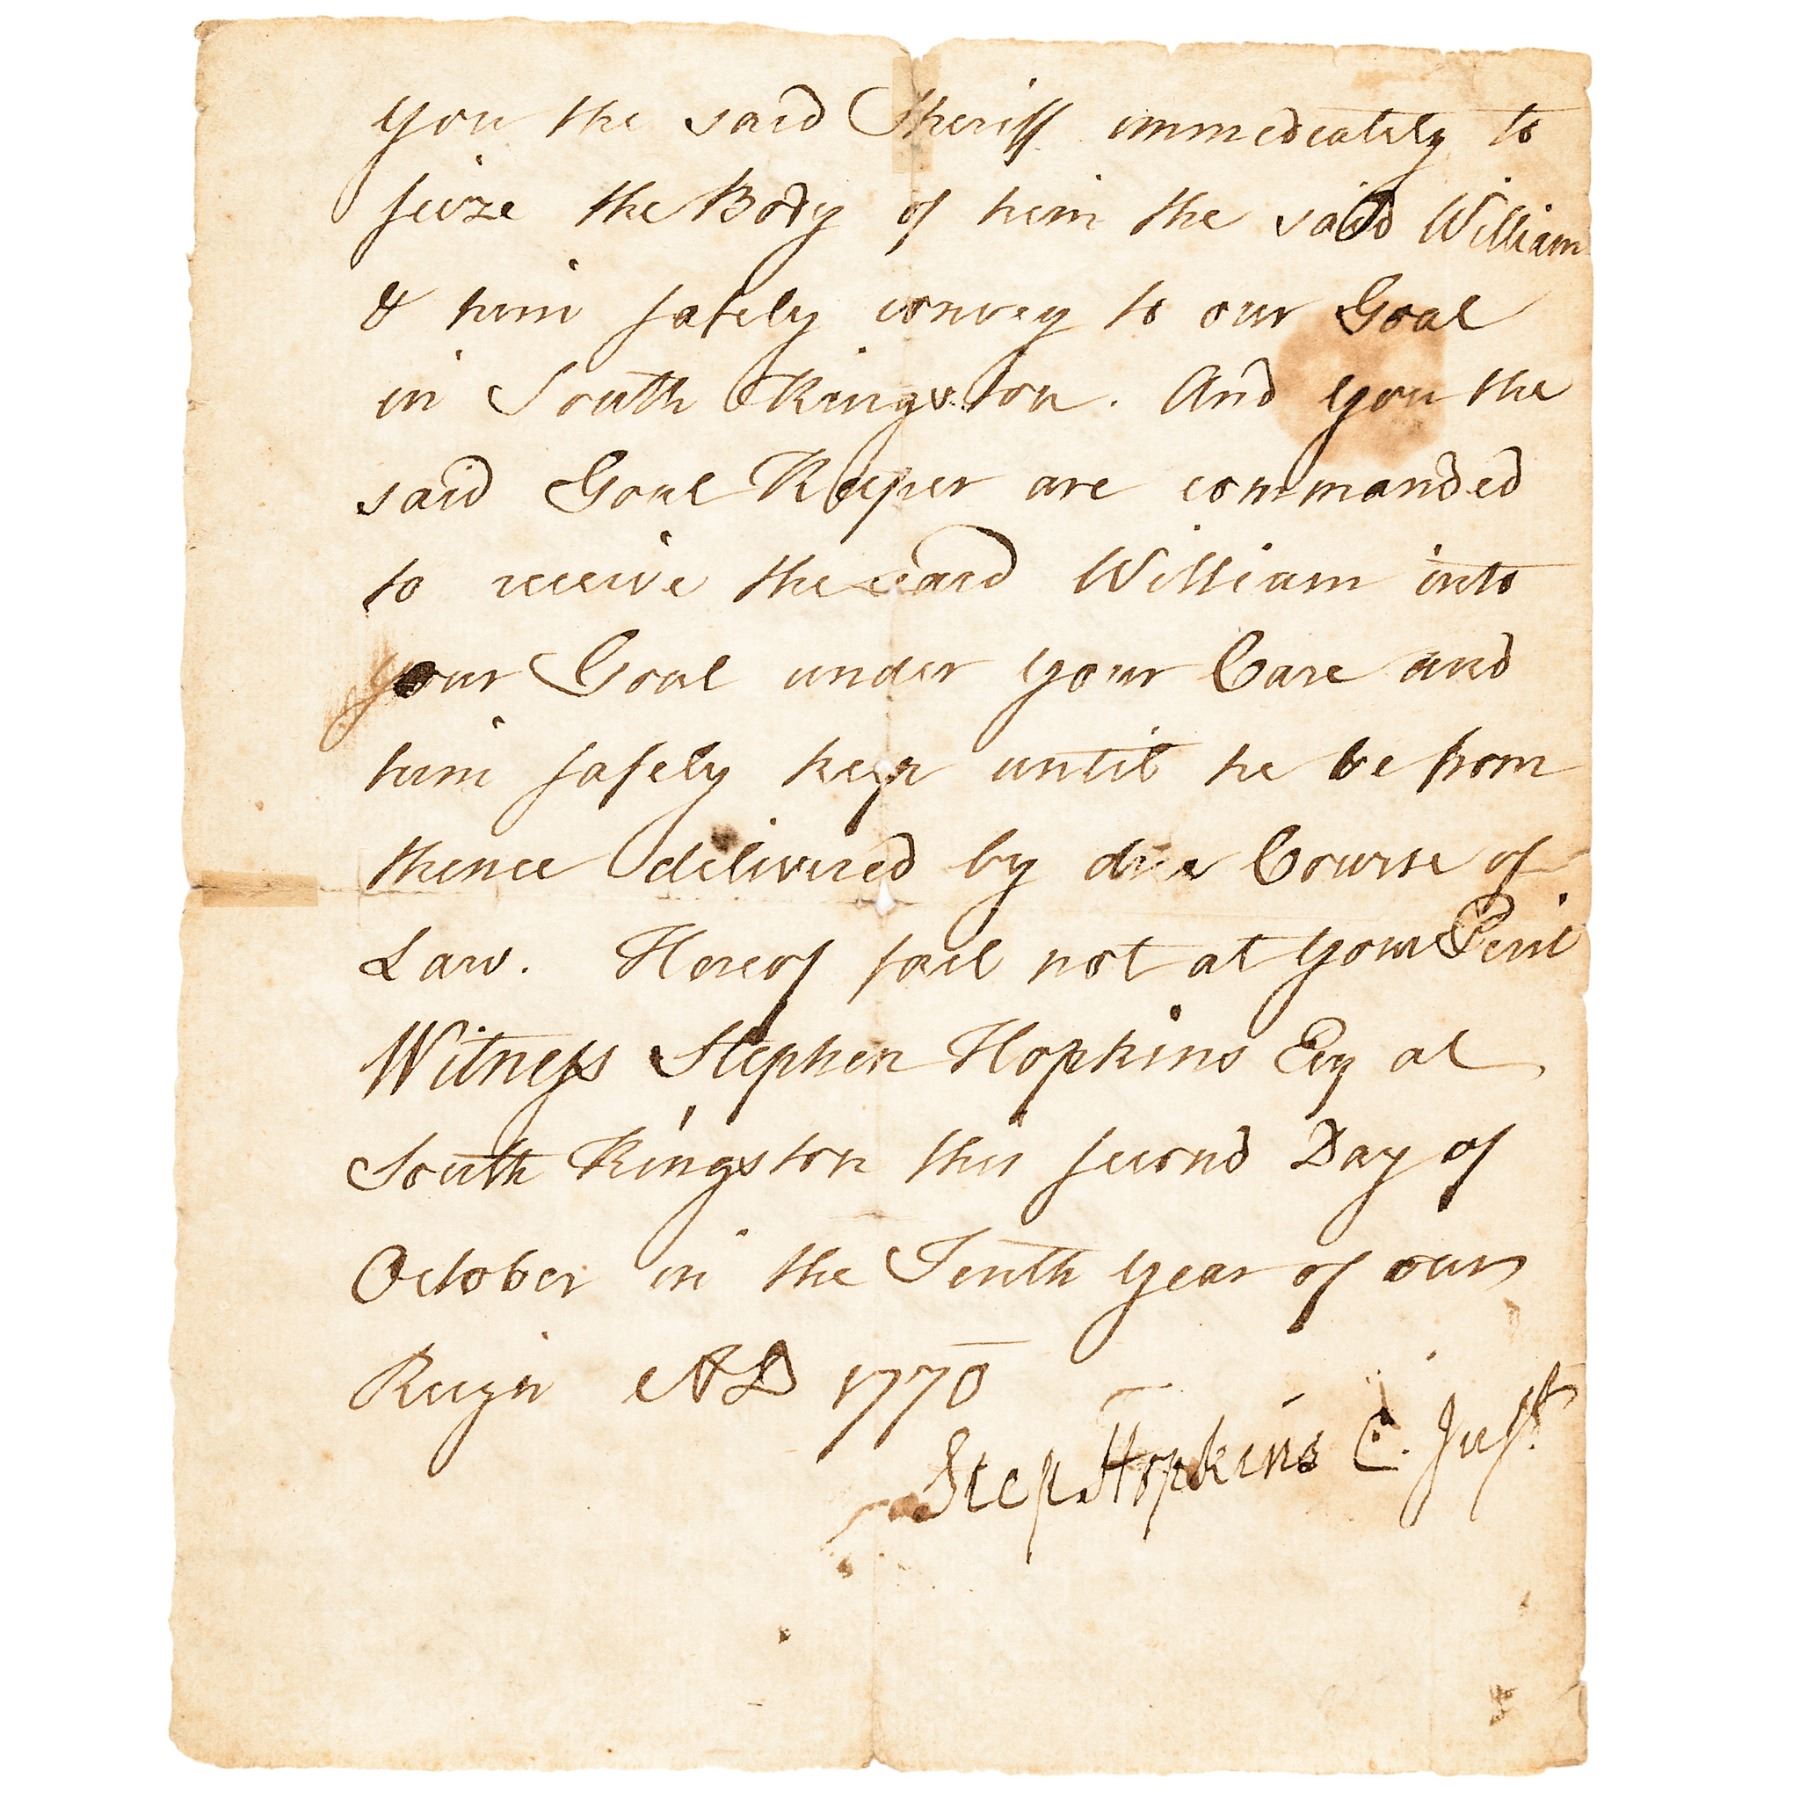 you the said Sheriff immediately to
seize the Body of him the said William
& him safely convey to our Goal
in South Kingston. And you the
said Goal Keeper are commanded
to receive the said William into
your Goal under your Care and
him safely keep until he be from
thence delivered by due Course of
Law. Hereof fail not at your Peril
Witness Stephen Hopkins Esq at
South Kingston this second Day of
October in the Tenth year of our
Reign AD 1770
Step Hopkins C. Just